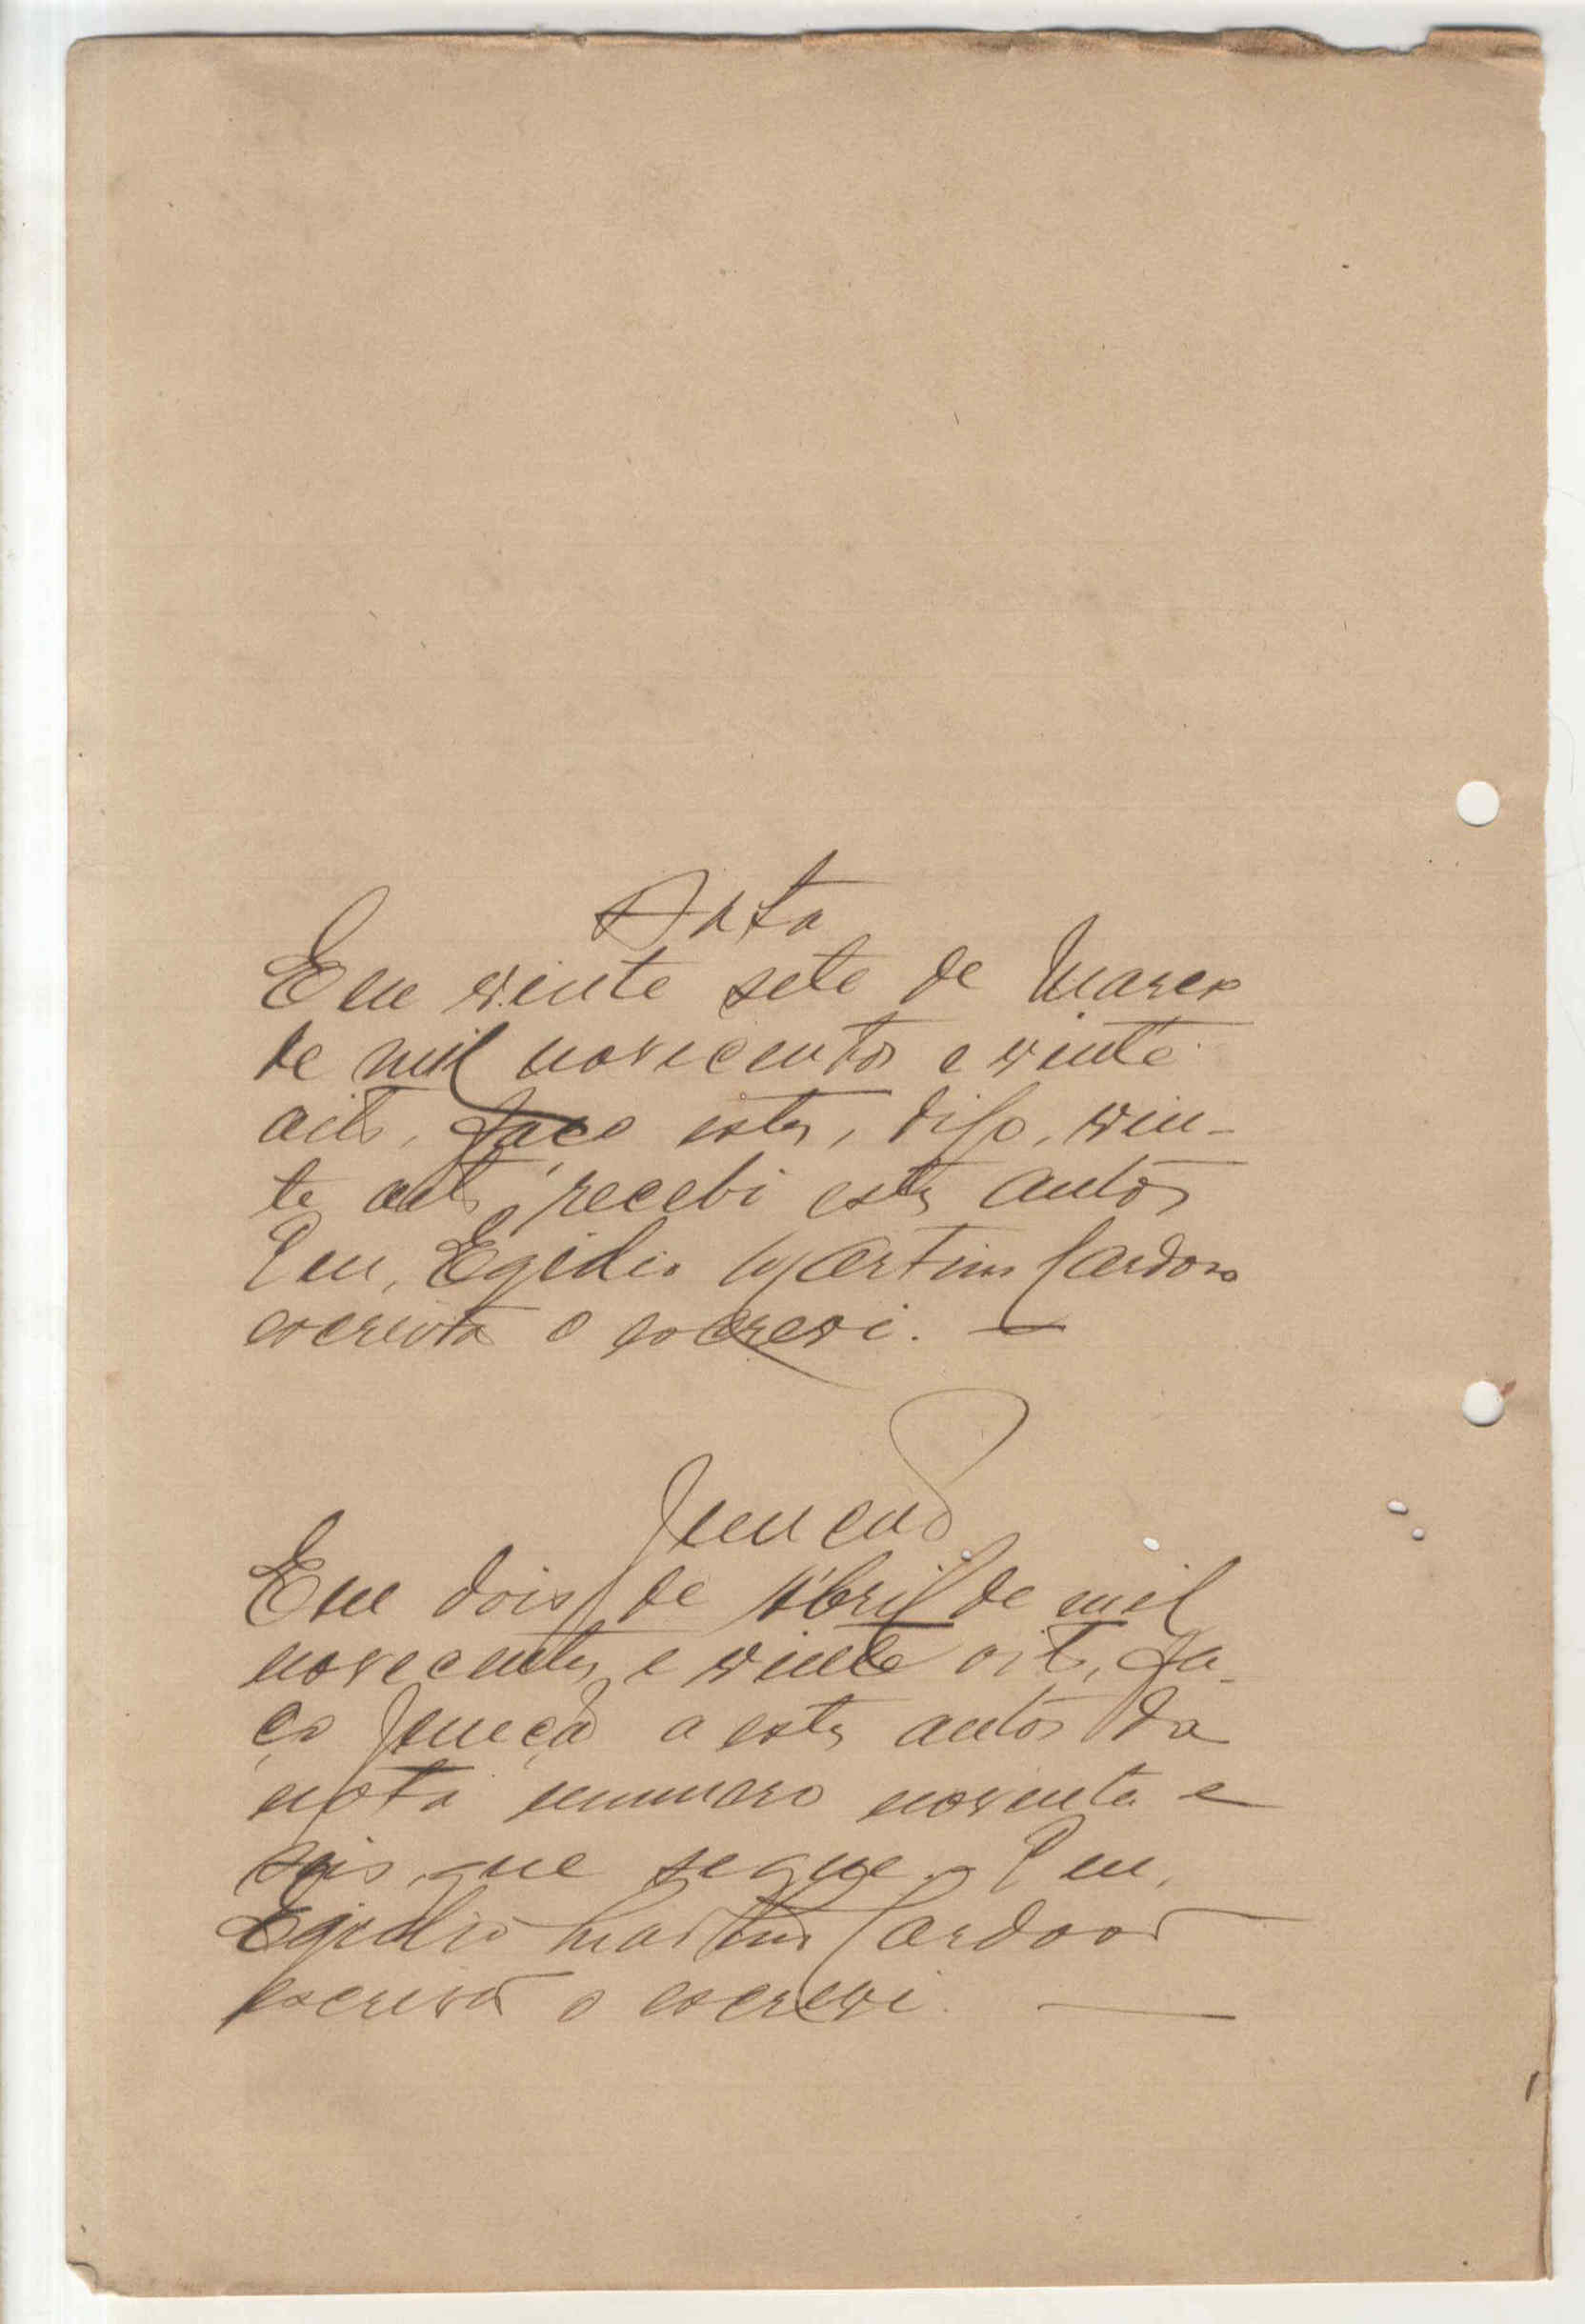 Data
Em vinte sete de Março
de mil novecentos e vinte
oito, faço estes, digo, vin-
te oito, recebi estes autos
Eu, Egidio Martins Cardoso
escrivão o escrevi. —
Juncção
Em dois de Abril de mil
novecentos e vinte oito, fa-
ço juncção a estes autos da
nota numero noventa e
seis que segue. Eu,
Egidio Martins Cardoso
escrivão o escrevi. —